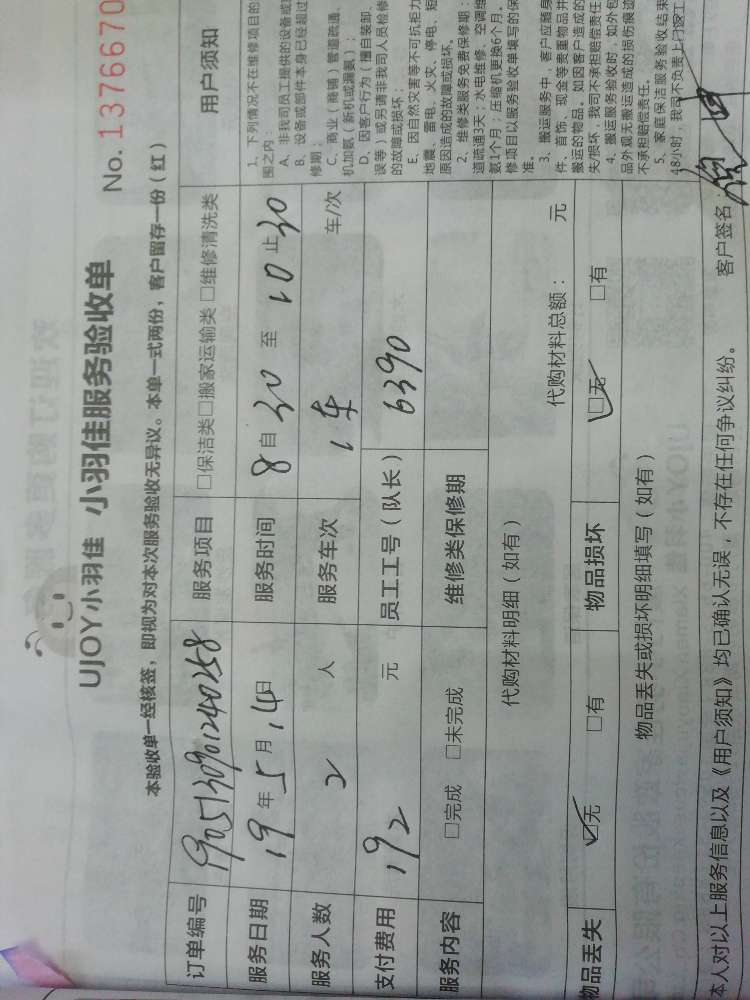 UJOY小羽佳 小羽佳服务验收单
No. 1376670
本验收单一经核签，即视为对本次服务验收无异议。本单一式两份，客户留存一份（红）
订单编号 服务项目 □保洁类□搬家运输类 □维修清洗类
服务日期 19年5月14日 服务时间 8自30至10止30
服务人数 2人 服务车次 1车 车/次
支付费用 192元 员工工号（队长） 6390
服务内容 □完成 □未完成 维修类保修期
代购材料明细（如有） 代购材料总额： 元
物品丢失 □无 □有 物品损坏 □无 □有
物品丢失或损坏明细填写（如有）
用户须知
1、下列情况不在维修项目的
围之内：
A、非我司员工提供的设备或
B、设备或部件本身已经超过
修期；
C、商业（商铺）管道疏通、
机加氨（新机或漏氨）；
D、因客户行为（擅自装卸、
误等）或另请非我司人员检修
的故障或损坏；
E、因自然灾害等不可抗拒力
地震、雷电、火灾、停电、短
原因造成的故障或损坏。
2、维修类服务免费保修期：
道疏通3天；水电维修、空调维
氨1个月；压缩机更换6个月。
修项目以服务验收单填写的保
准。
3、搬运服务中，客户应随身
件、首饰、现金等贵重物品并
搬运的物品。如因客户造成的
失/损坏，我司不承担赔偿责任
4、搬运服务验收时，如外包
品外观无搬运造成的损伤痕迹
不承担赔偿责任。
5、家庭保洁服务验收结束
48小时，我司不负责上门返工
本人对以上服务信息以及《用户须知》均已确认无误，不存在任何争议纠纷。 客户签名